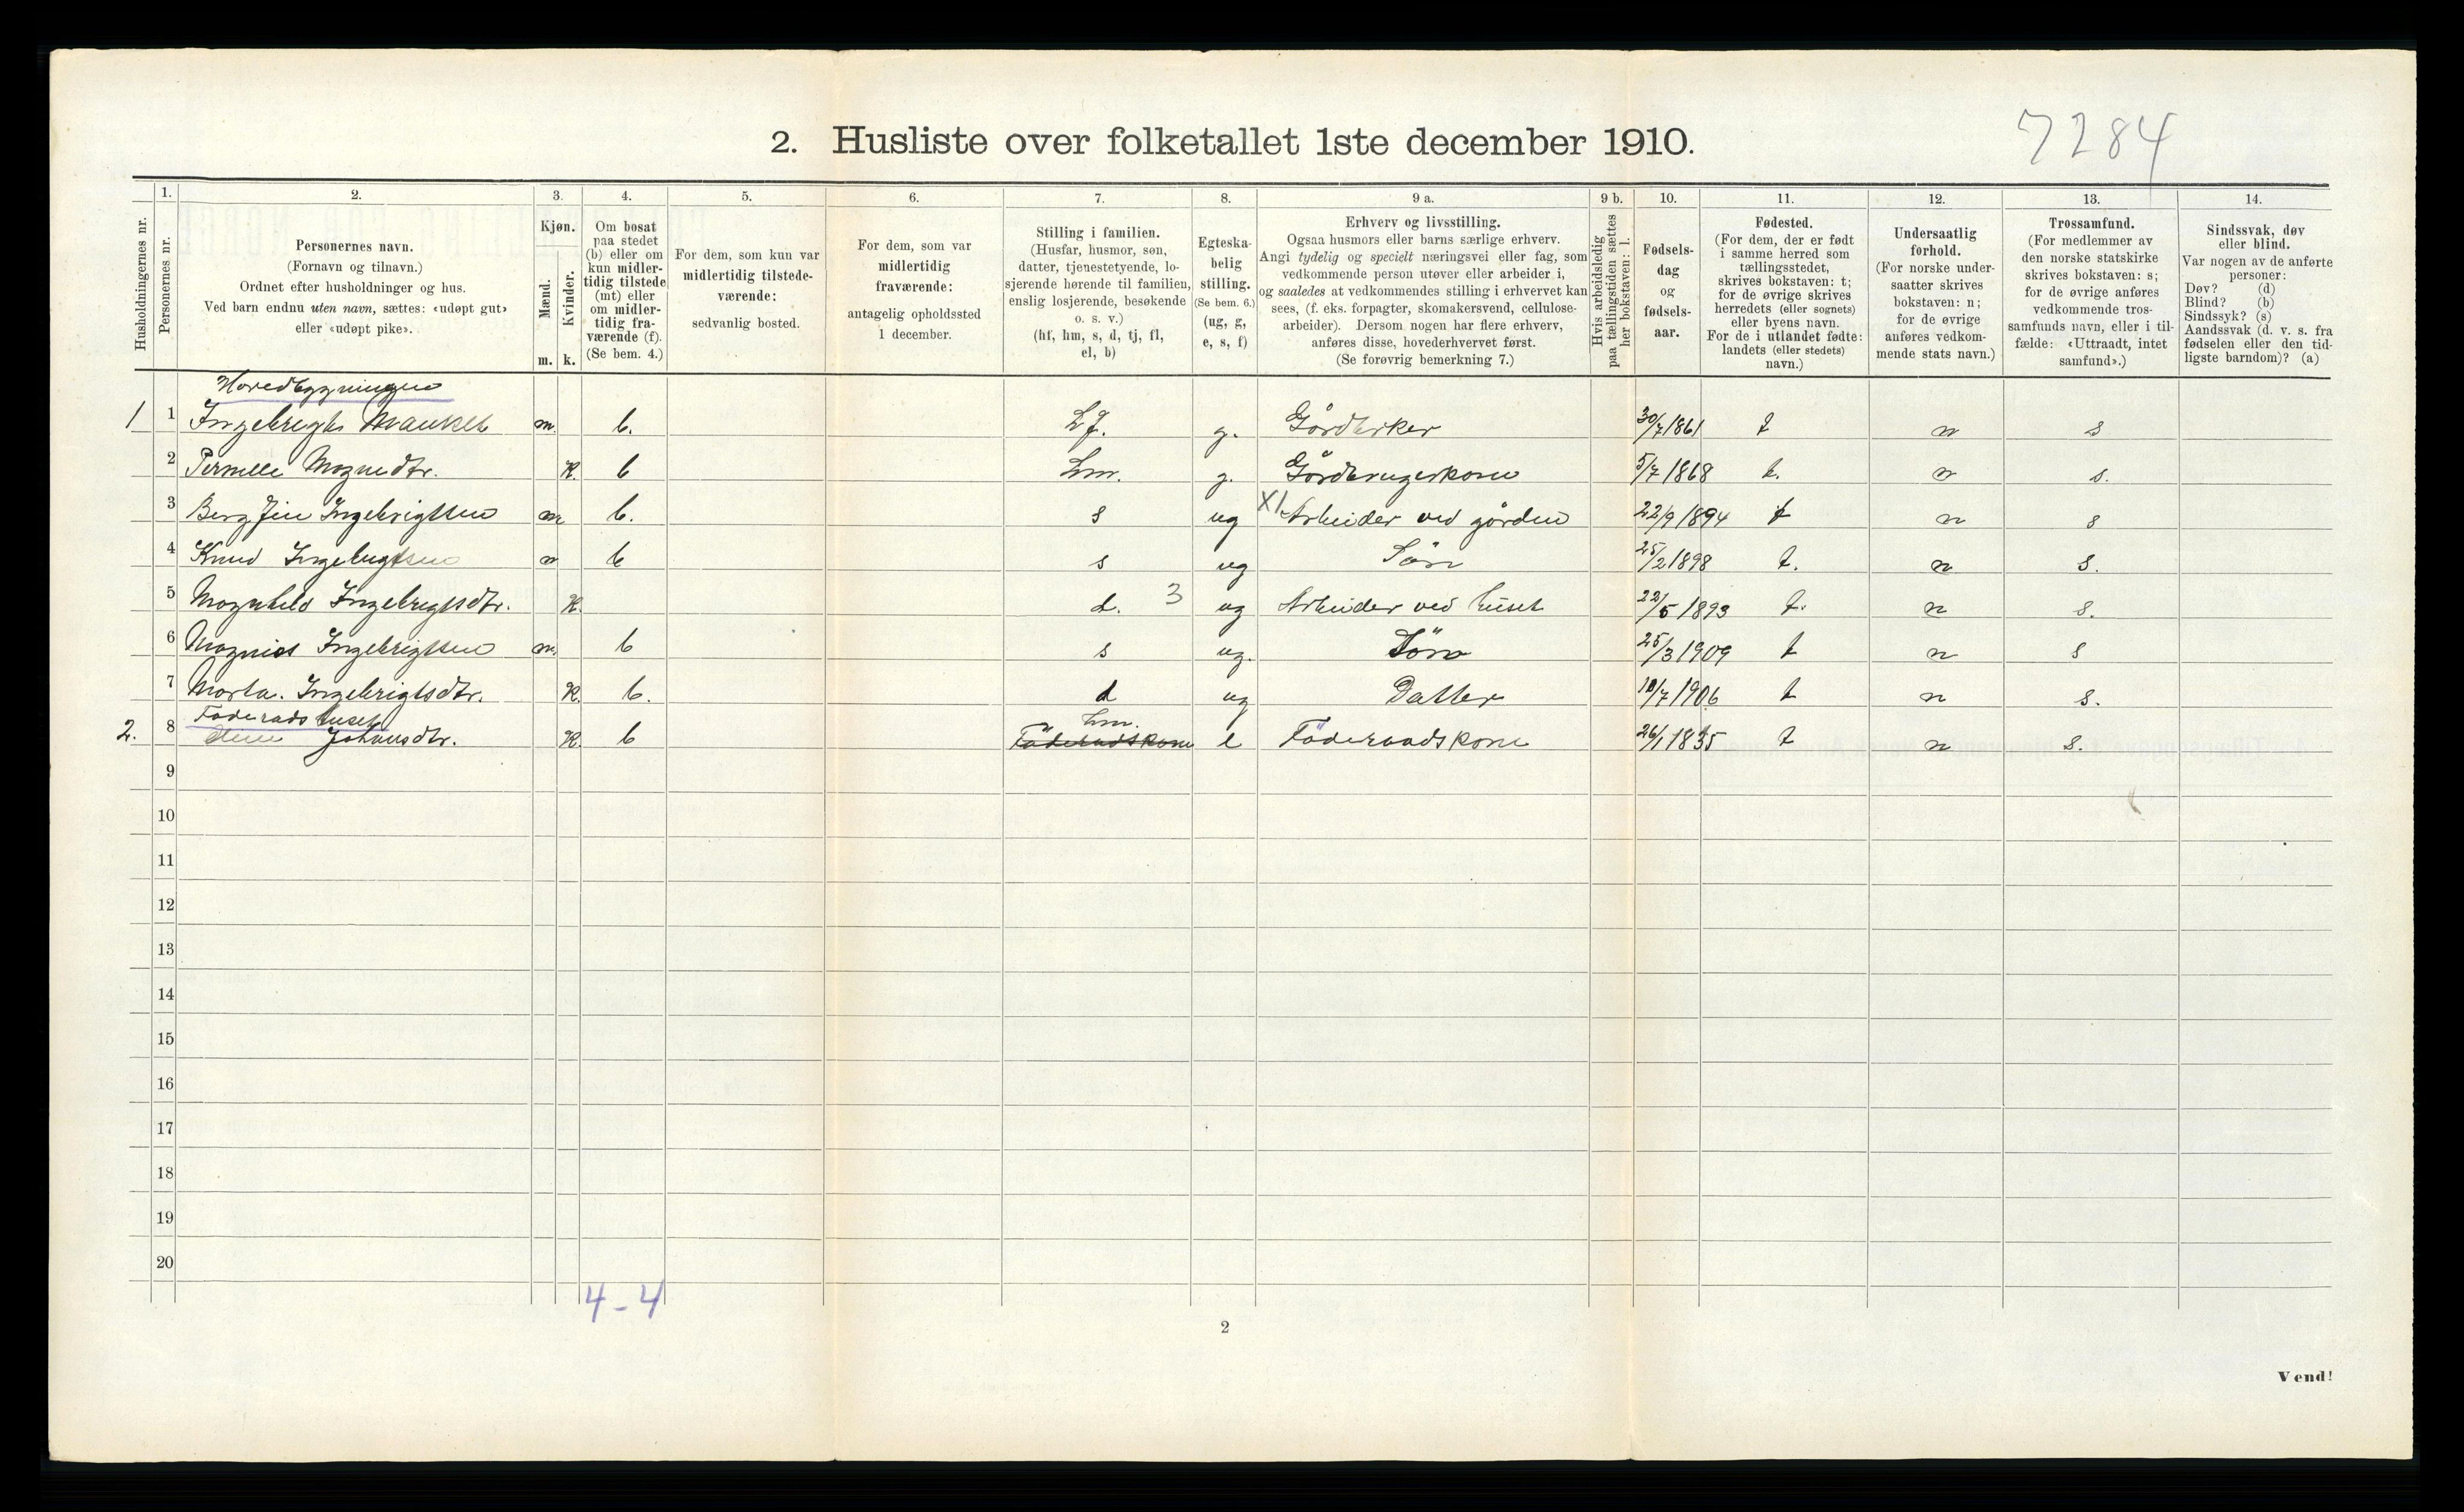 2. Husliste over folketallet 1ste december 1910.
7284
1. 2. 3. 4. 5. 6. 7. 8. 9 a. 9 b. 10. 11. 12. 13. 14.
Husholdningernes nr.
Personernes nr.
Personernes navn.
(Fornavn og tilnavn.)
Ordnet efter husholdninger og hus.
Ved barn endnu uten navn, sættes: «udøpt gut»
eller «udøpt pike».
Kjøn.
Mænd.
Kvinder.
m. k.
Om bosat
paa stedet
(b) eller om
kun midler-
tidig tilstede
(mt) eller
om midler-
tidig fra-
værende (f).
(Se bem. 4.)
For dem, som kun var
midlertidig tilstede-
værende:
sedvanlig bosted.
For dem, som var
midlertidig
fraværende:
antagelig opholdssted
1 december.
Stilling i familien.
(Husfar, husmor, søn,
datter, tjenestetyende, lo-
sjerende hørende til familien,
enslig losjerende, besøkende
o. s. v.)
(hf, hm, s, d, tj, fl,
el, b)
Egteska-
belig
stilling.
(Se bem. 6.)
(ug, g,
e, s, f)
Erhverv og livsstilling.
Ogsaa husmors eller barns særlige erhverv.
Angi tydelig og specielt næringsvei eller fag, som
vedkommende person utøver eller arbeider i,
og saaledes at vedkommendes stilling i erhvervet kan
sees, (f. eks. forpagter, skomakersvend, cellulose-
arbeider). Dersom nogen har flere erhverv,
anføres disse, hovederhvervet først.
(Se forøvrig bemerkning 7.)
Hvis arbeidsledig
paa tællingstiden sættes
her bokstaven: l.
Fødsels-
dag
og
fødsels-
aar.
Fødested.
(For dem, der er født
i samme herred som
tællingsstedet,
skrives bokstaven: t;
for de øvrige skrives
herredets (eller sognets)
eller byens navn.
For de i utlandet fødte:
landets (eller stedets)
navn.)
Undersaatlig
forhold.
(For norske under-
saatter skrives
bokstaven: n;
for de øvrige
anføres vedkom-
mende stats navn.)
Trossamfund.
(For medlemmer av
den norske statskirke
skrives bokstaven: s;
for de øvrige anføres
vedkommende tros-
samfunds navn, eller i til-
fælde: «Uttraadt, intet
samfund».)
Sindssvak, døv
eller blind.
Var nogen av de anførte
personer:
Døv? (d)
Blind? (b)
Sindssyk? (s)
Aandssvak (d. v. s. fra
fødselen eller den tid-
ligste barndom)? (a)
Hovedbygningen
1 1 Ingebrigt m. b. g. 30/7 1861 t n s
2 Pernille Mognedtr. K. b hm. g. Gårdbrugerkone 5/7 1868 t. n s.
3 Ingebrigtsen m b. s ug X1 Arbeider ved gården 22/9 1894 t n s
4 Knud Ingebrigtsen m b s ug Sön 25/2 1898 t. n s.
5 Mognhild Ingebrigtsdtr. K. d. 3 ug Arbeider ved huset 22/5 1893 t. n s.
6 Ingebrigtsen m. b s ug. Sön 25/3 1909 t n s
7 Marta. Ingebrigtsdtr. K. b. d ug Datter 10/7 1906 t n s.
Föderadshuset hm.
2. 8 Johansdtr. K. b Föderadskone e Föderaadskone 26/1 1835 t n s.
9
10
11
12
13
14
15
16
17
18
19
20
4-4
2
Vend!